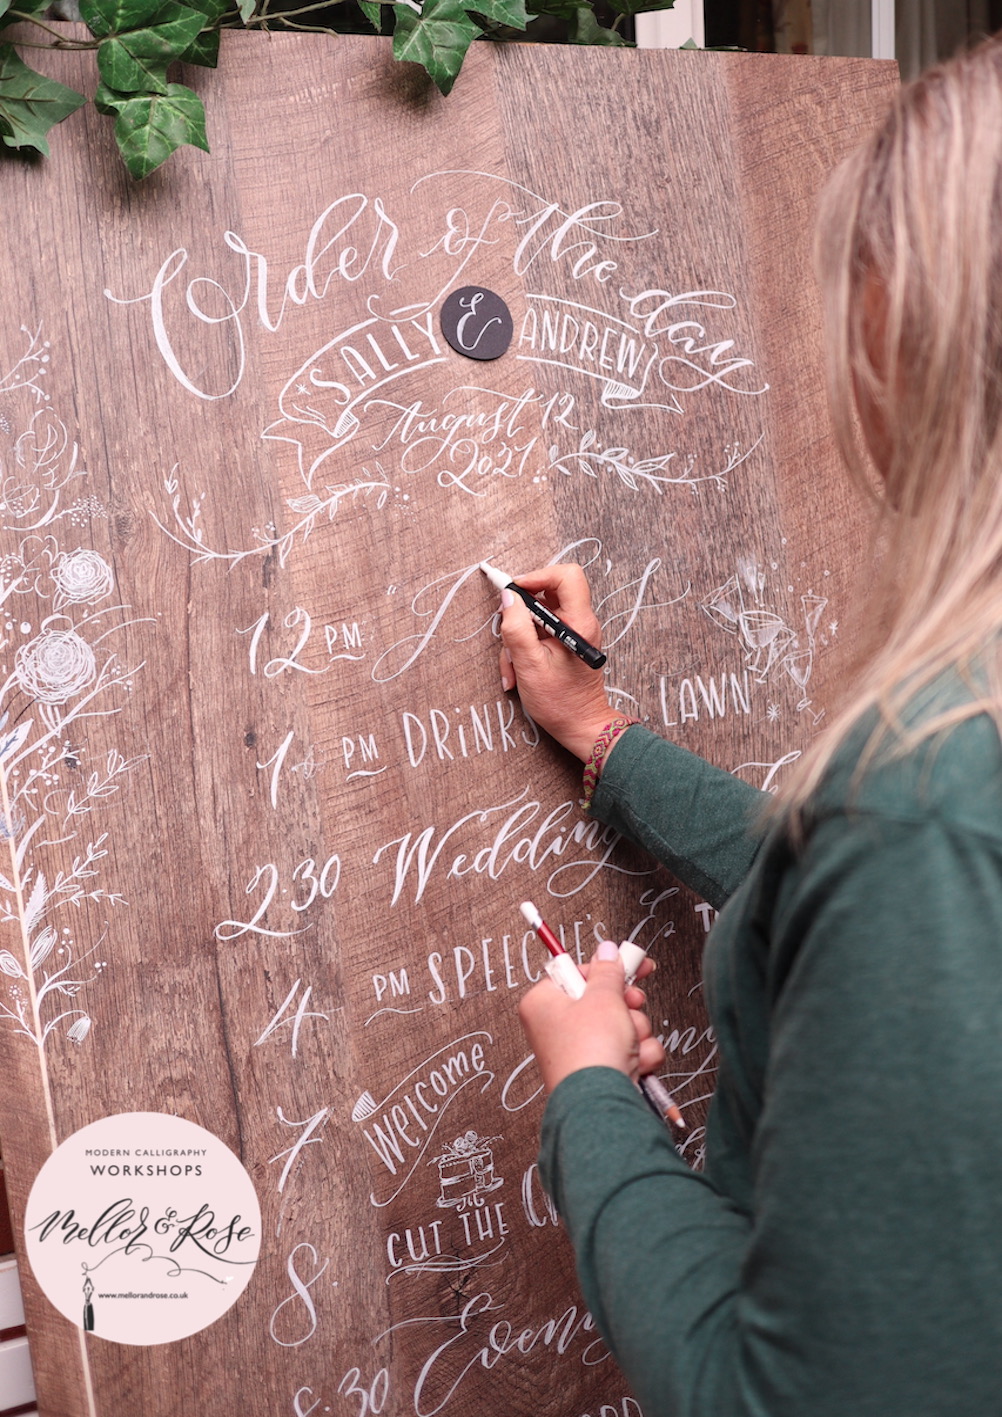 Order of the day
SALLY & ANDREW
August 12
2021
12 PM "I do's
1 PM DRINKS LAWN
2.30 Wedding
4 PM SPEECHES &
7 Welcome
8 CUT THE
8.30
MODERN CALLIGRAPHY
WORKSHOPS
Mellor & Rose
www.mellorandrose.co.uk